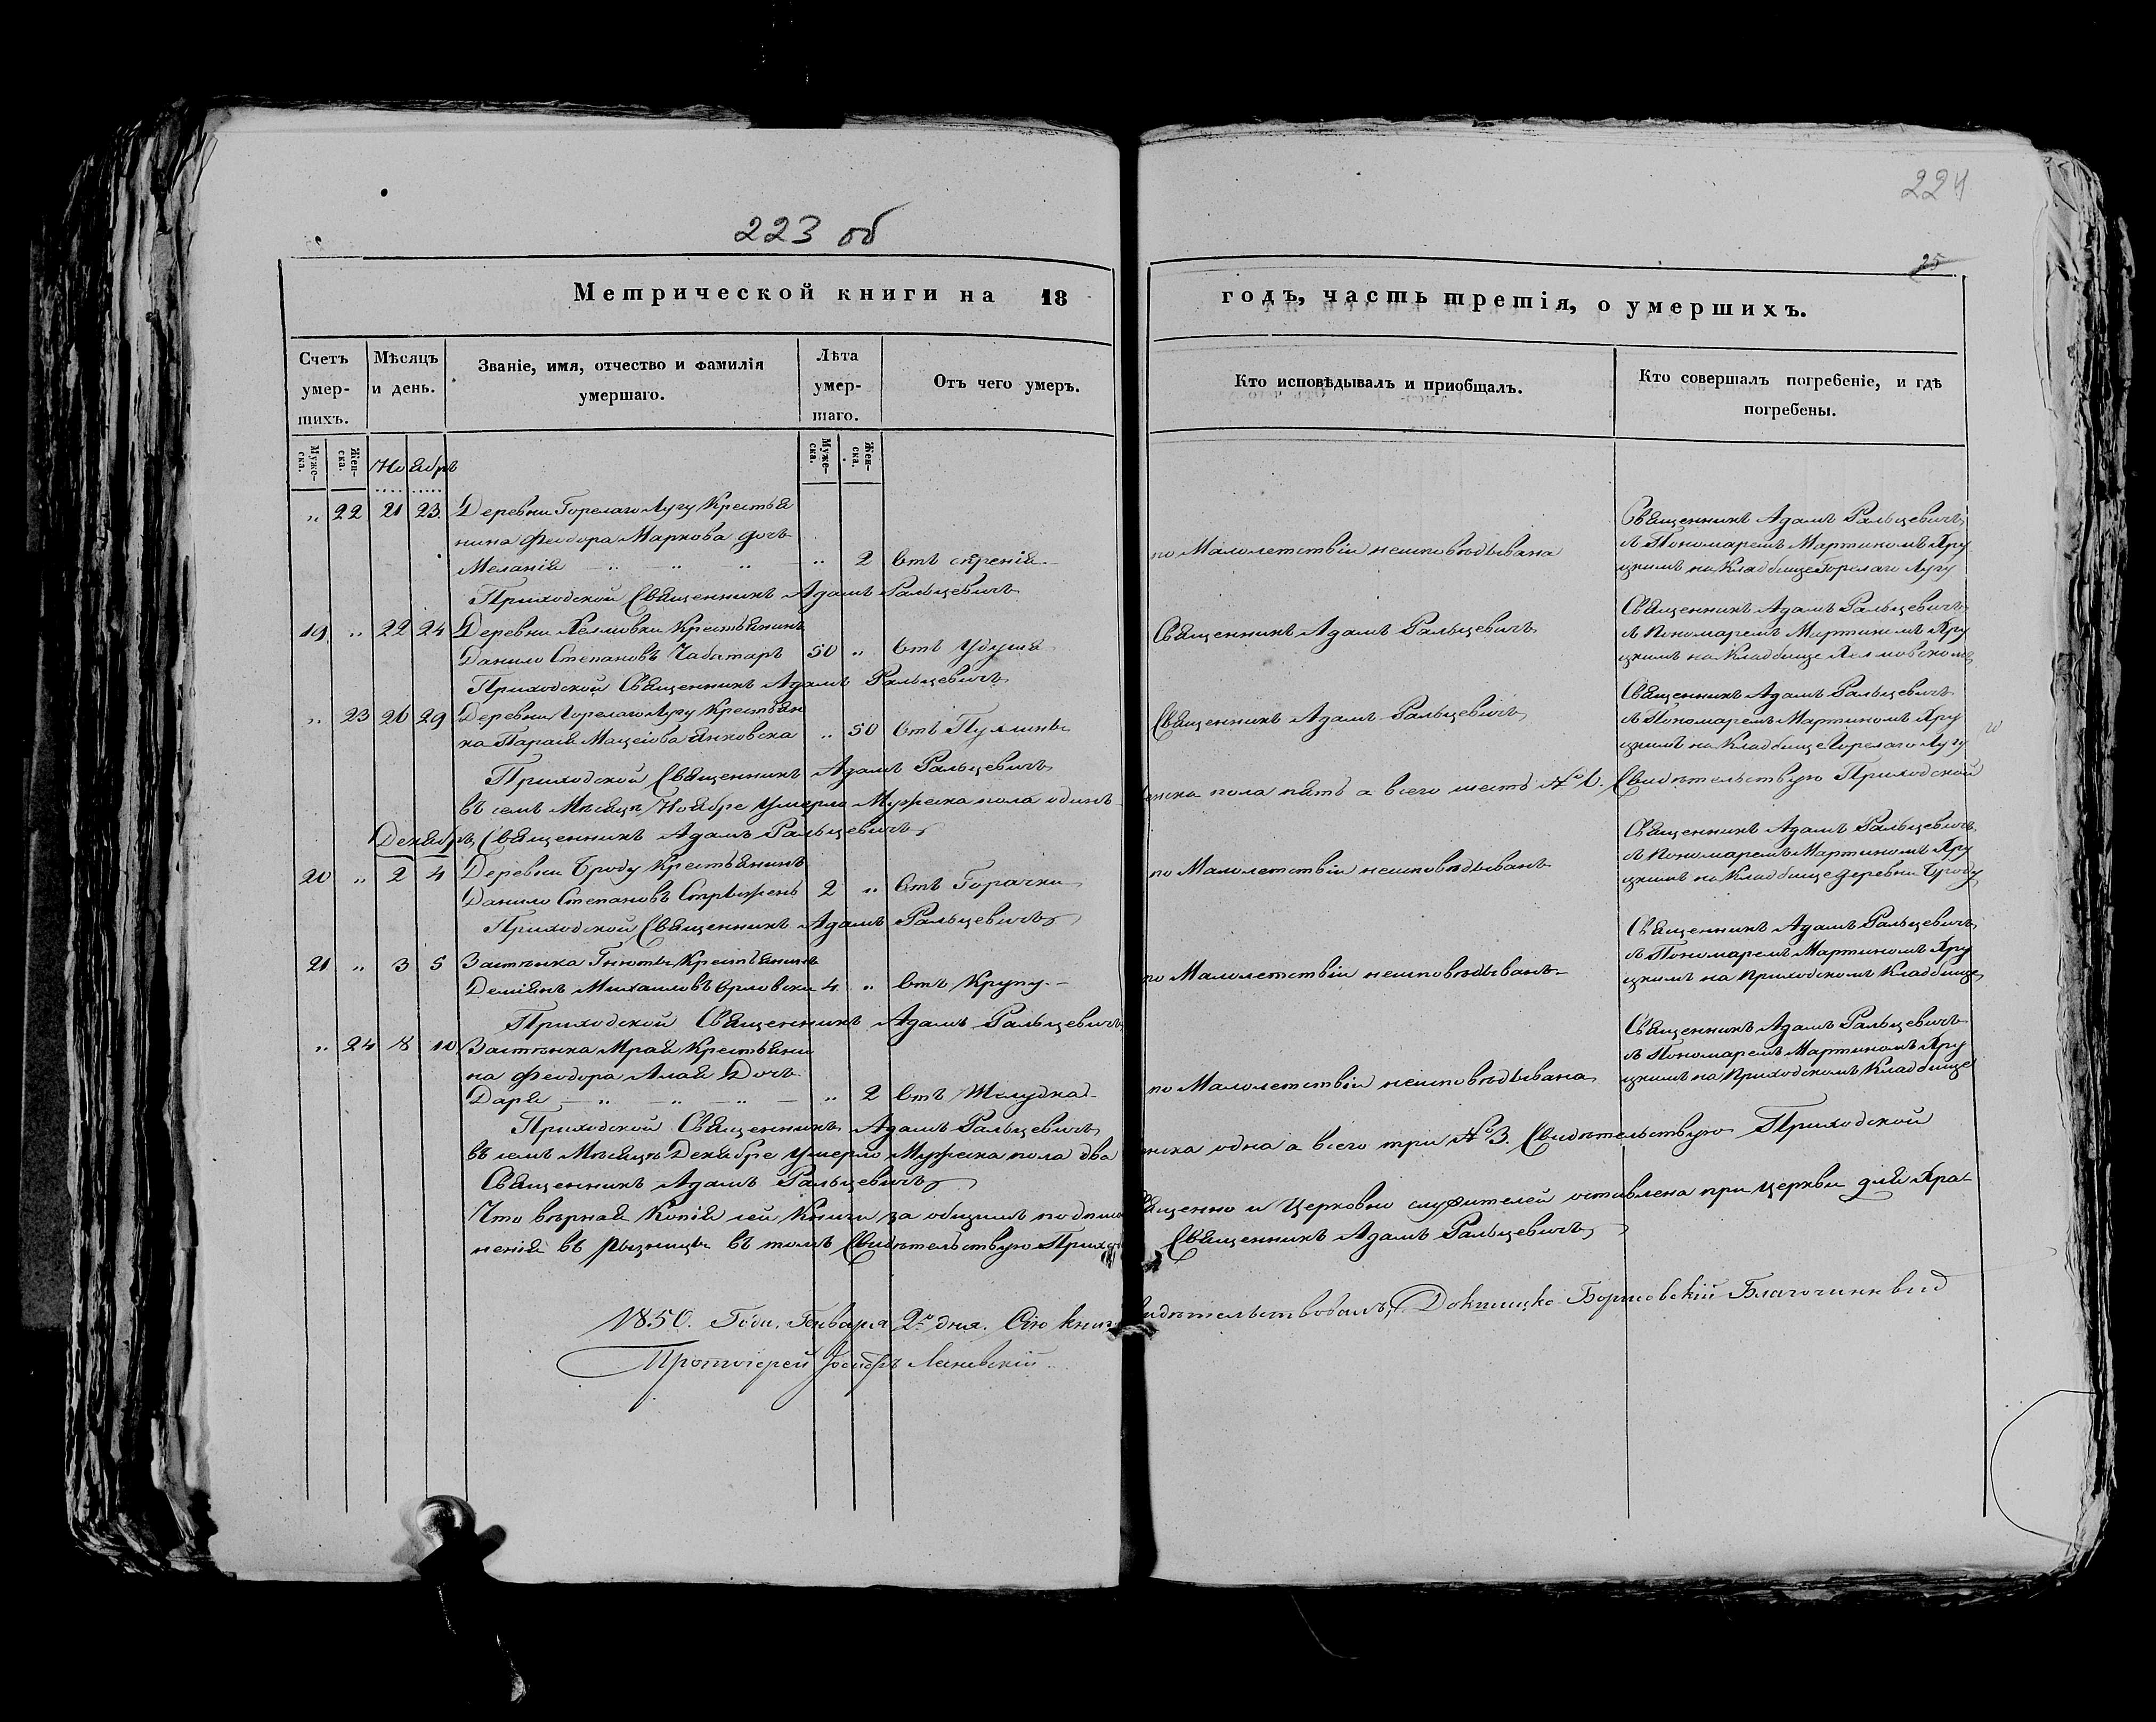 224
223 об
25
Метрической книги на 18
годъ, часть третія, о умершихъ.
Счетъ умер-
шихъ.
Мѣсяцъ
и день.
Званіе, имя, отчество и фамилія
умершаго.
Лѣта
умер-
шаго.
Отъ чего умеръ.
Кто исповѣдывалъ и приобщалъ.
Кто совершалъ погребеніе, и гдѣ
погребены.
Муже-
ска.
Жен-
ска.
Ноябрь
Муже-
ска.
Жен-
ска.
„ 22 21 23 Деревни Горелаго Лугу Крестья
нина Феодора Маркова дочь
Меланія „ 2 Отъ
по Малолетствіи неисповѣдывана
Священникъ Адамъ Ральцевичъ
съ Пономаремъ Мартиномъ Хру
цкимъ на Кладбище Горелаго Лугу
Приходской Священникъ Адамъ Ральцевичъ
19 „ 22 24 Деревни Крестьянинъ
Данило Степановъ Чаботаръ 50 „ Отъ Удушя
Священникъ Адамъ Ральцевичъ
Священникъ Адамъ Ральцевичъ
съ Пономаремъ Мартиномъ Хру
цкимъ на Кладбище
Приходской Священникъ Адамъ Ральцевичъ
„ 23 26 29 Деревни Горелаго Лугу Крестьян
ка Парася Мацеіова Янковска „ 50 Отъ Пухлины
Священникъ Адамъ Ральцевичъ
Священникъ Адамъ Ральцевичъ
съ Пономаремъ Мартиномъ Хру
цкимъ на Кладбище Горелаго Лугу
Приходской Священникъ Адамъ Ральцевичъ
Въ семъ Мѣсяцѣ Ноябре Умерло Мужеска пола одинъ
женска пола пять а всего шесть № 6. Свидѣтельствую Приходской
Декабрь Священникъ Адамъ Ральцевичъ
20 „ 2 4 Деревни Броду Крестьянинъ
Данило Степановъ Стрыжень 2 „ Отъ Горачки
по Малолетствіи неисповѣдыванъ
Священникъ Адамъ Ральцевичъ
съ Пономаремъ Мартиномъ Хру
цкимъ на Кладбище деревни Броду
Приходской Священникъ Адамъ Ральцевичъ
21 „ 3 5 Застѣнка Гнюты Крестьянинъ
Деміянъ Михаиловъ Орловски 4 „ Отъ Крупу
по Малолетствіи неисповѣдыванъ
Священникъ Адамъ Ральцевичъ
съ Пономаремъ Мартиномъ Хру
цкимъ на Приходскомъ Кладбище
Приходской Священникъ Адамъ Ральцевичъ
„ 24 8 10 Застѣнка Мрай Крестьяни
на Феодора Алая Дочь
Даря „ 2 Отъ Желудка
по Малолетствіи неисповѣдывана
Священникъ Адамъ Ральцевичъ
съ Пономаремъ Мартиномъ Хру
цкимъ на Приходскомъ Кладбище
Приходской Священникъ Адамъ Ральцевичъ
Въ семъ Мѣсяцѣ Декабре Умерло Мужеска пола два
женска одна а всего три № 3. Свидѣтельствую Приходской
Священникъ Адамъ Ральцевичъ
Что вѣрная Копія сей Книги за общимъ подпи
Священно и Церковно служителей оставлена при Церкви для Хра
ненія въ Рызницы въ томъ Свидѣтельствую Приход
Священникъ Адамъ Ральцевичъ
1850. Года, Генваря 2го дня. Сію книг
видѣтельствовалъ, Докшицко-Борисовскій Благочинный
Протоіерей Іосифъ